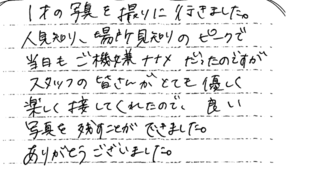 1才の写真を撮りに行きました。
人見知り、場所見知りのピークで
当日もご機嫌ナナメだったのですが
スタッフの皆さんがとても優しく
楽しく接してくれたので、良い
写真を残すことができました。
ありがとうございました。